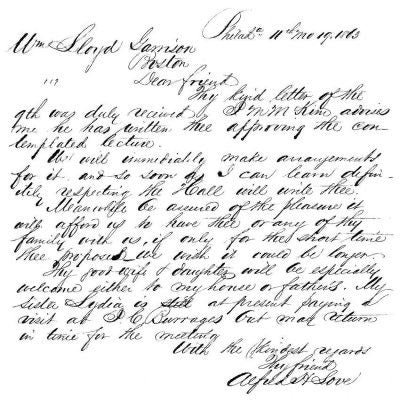 Philada 11th Mo 19. 1863
Wm Lloyd Garrison
Boston
Dear friend
Thy kind letter of the
9th was duly received, J M McKim advises
me he has written thee approving the con-
templated lecture.
We will immediately make arrangements
for it. and so soon as I can learn defin-
itely respecting the Hall will write thee.
Meanwhile be assured of the pleasure it
will afford us to have thee or any of thy
family with us, if only for the short time
thee proposed, we wish it could be longer.
Thy wife & daughter will be especially
welcome either to my house or fathers. My
Sister Lydia is still at present paying a
visit at J. C. Burrages but may return
in time for the meeting
With the kindest regards
Thy friend
Alfred H Love